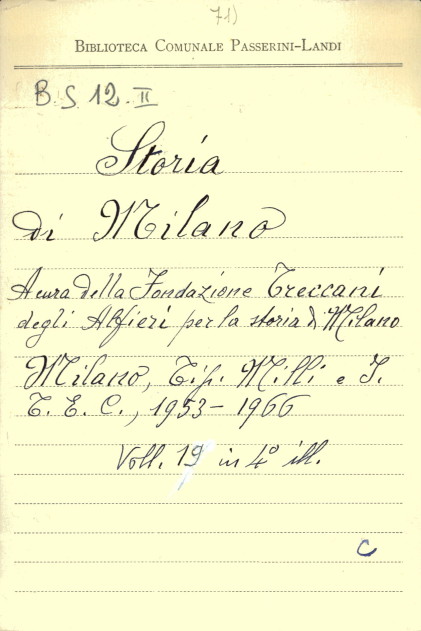 71)
BIBLIOTECA COMUNALE PASSERINI-LANDI
B.S 12. II
Storia
di Milano
A cura della Fondazione Treccani
degli Alfieri per la storia di Milano
Milano, Tip. Milli e I.
T. E. C., 1953-1966
Voll. 19 in 4° ill.
C